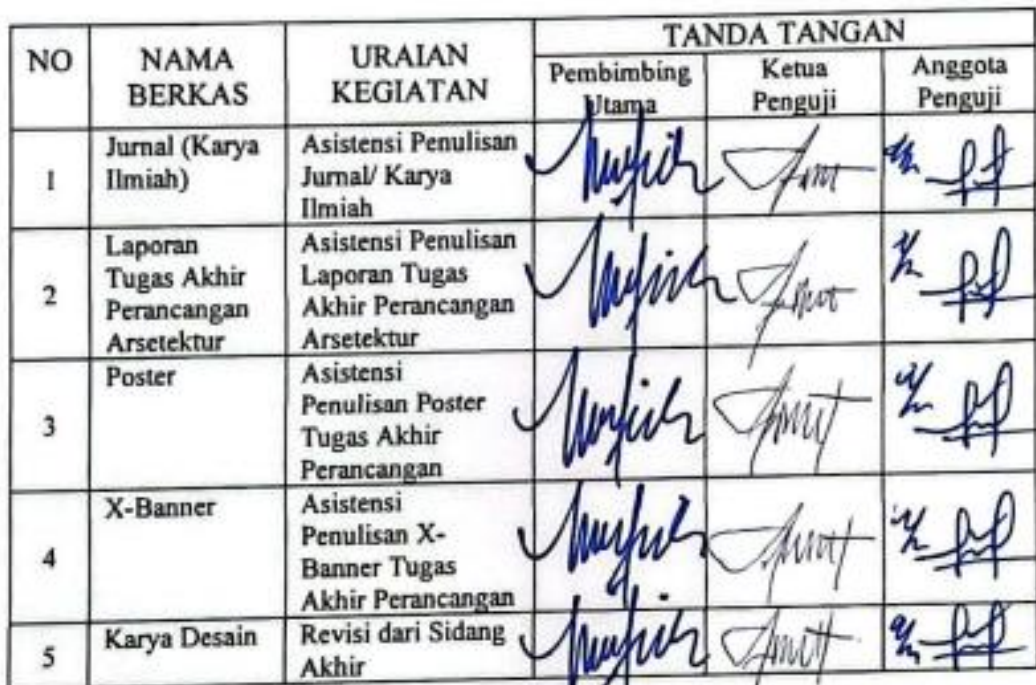 NO
NAMA
BERKAS
URAIAN
KEGIATAN
TANDA TANGAN
Pembimbing
Utama
Ketua
Penguji
Anggota
Penguji
1
Jurnal (Karya
Ilmiah)
Asistensi Penulisan
Jurnal/ Karya
Ilmiah
2
Laporan
Tugas Akhir
Perancangan
Arsetektur
Asistensi Penulisan
Laporan Tugas
Akhir Perancangan
Arsetektur
3
Poster
Asistensi
Penulisan Poster
Tugas Akhir
Perancangan
4
X-Banner
Asistensi
Penulisan X-
Banner Tugas
Akhir Perancangan
5
Karya Desain
Revisi dari Sidang
Akhir